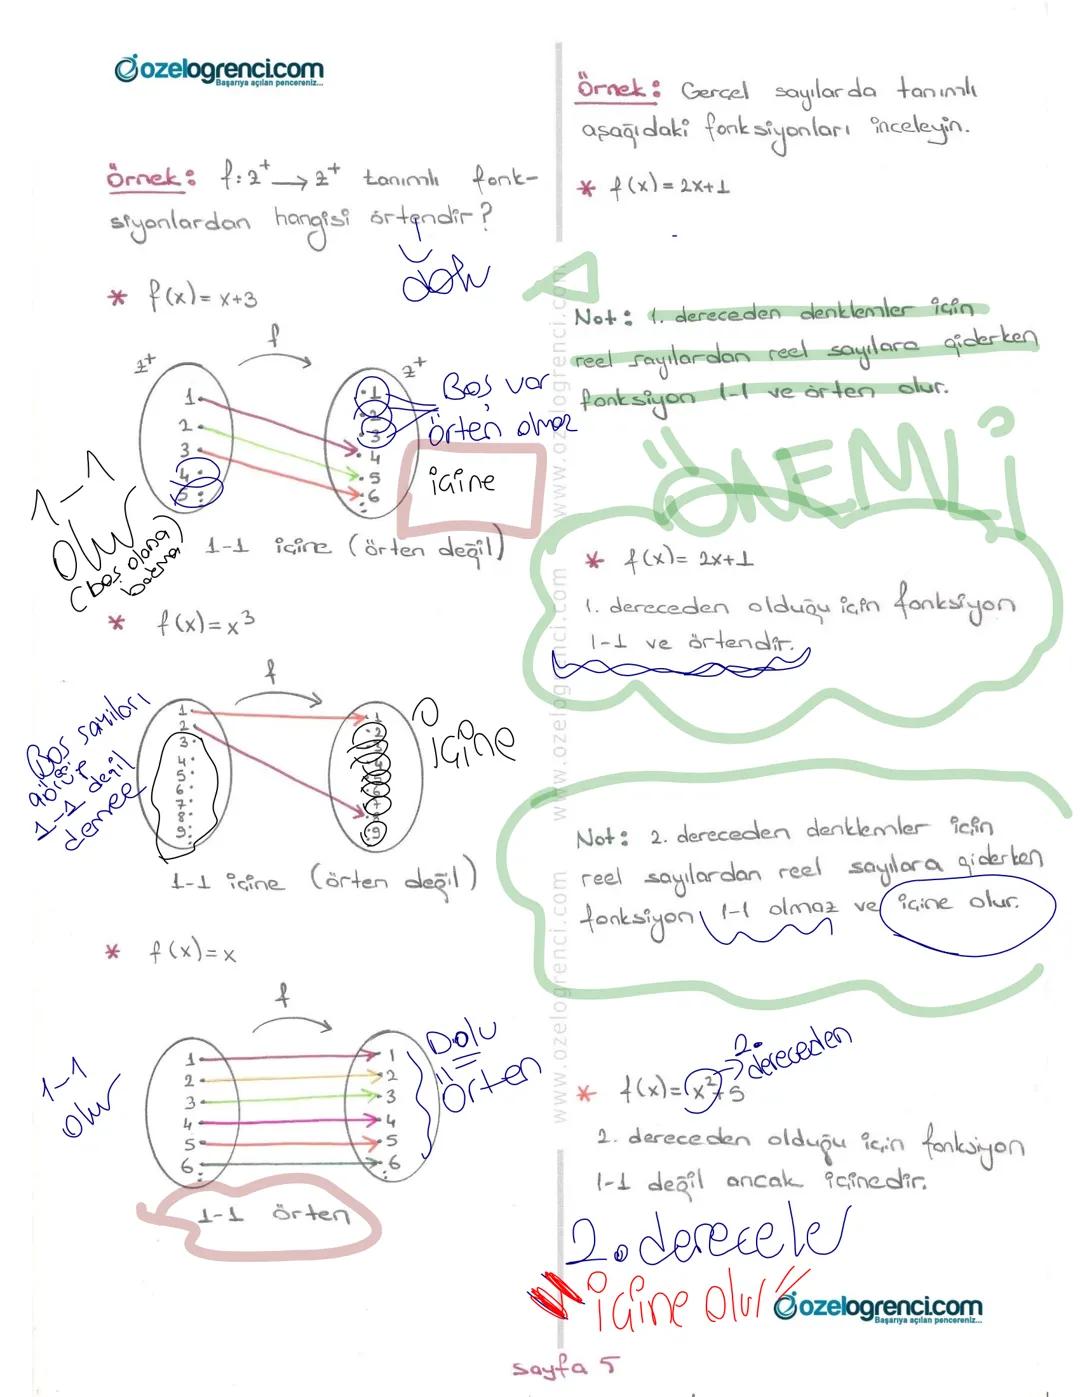 ozelogrenci.com
Başarıya açılan pencereniz...
Örnek: f: Z⁺ → Z⁺ tanımlı fonk-
siyonlardan hangisi örtendir?
dolu
* f(x) = x+3
f
Z⁺
Z⁺
1
2
3
4
5
1
2
3
4
5
6
Boş var
örten olmaz
içine
1-1
olur
(boş olana
bakma)
1-1 içine (örten değil)
* f(x) = x³
f
1
2
3
4
5
6
7
8
9
1
2
8
9
içine
Boş sayıları
görüp
1-1 değil
deme
1-1 içine (örten değil)
* f(x) = x
f
1
2
3
4
5
6
1
2
3
4
5
6
Dolu
=
örten
1-1
olur
1-1 örten
Örnek: Gerçel sayılarda tanımlı
aşağıdaki fonksiyonları inceleyin.
* f(x) = 2x+1
Not: 1. dereceden denklemler için
reel sayılardan reel sayılara giderken
fonksiyon 1-1 ve örten olur.
ÖNEMLİ
* f(x) = 2x+1
1. dereceden olduğu için fonksiyon
1-1 ve örtendir.
Not: 2. dereceden denklemler için
reel sayılardan reel sayılara giderken
fonksiyon 1-1 olmaz ve içine olur.
* f(x) = x²+5
→ 2. dereceden
2. dereceden olduğu için fonksiyon
1-1 değil ancak içinedir.
2. dereceler
içine olur
ozelogrenci.com
Başarıya açılan pencereniz...
www.ozelogrenci.com www.ozelogrenci.com www.ozelogrenci.com
sayfa 5